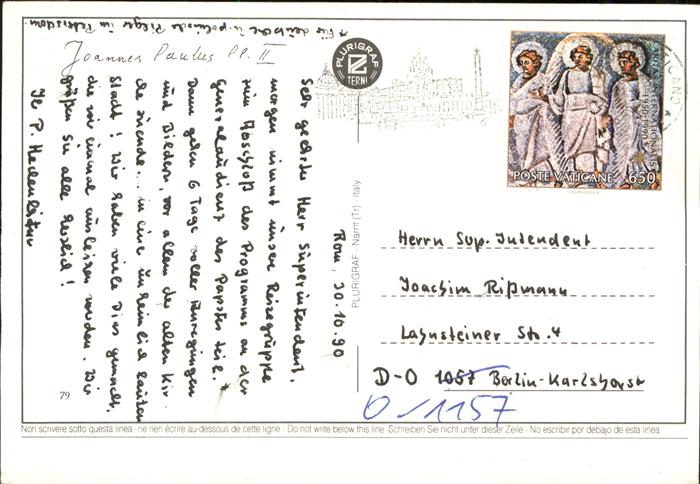 * Für deutsche u. polnische Pilger im Petersdom.
Joannes Paulus PP. II
Rom, 30.10.90
Sehr geehrter Herr Superintendent,
morgen nimmt unsere Reisegruppe
zum Abschluß des Programms an der
Generalaudienz des Papstes teil.*
Dann gehen 6 Tage voller Anregungen
und Bildern, vor allem der alten Kir-
che zuende... in eine unheimlich lauten
Stadt! Wir haben viele Dias gemacht,
die wir einmal ausleihen werden. Wir
grüßen Sie alle herzlich!
Ihr P.
PLURIGRAF
TERNI
PLURIGRAF - Narni (Tr) - Italy
POSTE VATICANE 650
Herrn Sup. Intendent
Joachim Rißmann
Lahnsteiner Str. 4
D-O 1057 Berlin-Karlshorst
O/1157
79
Non scrivere sotto questa linea - ne rien écrire au-dessous de cette ligne - Do not write below this line - Schreiben Sie nicht unter dieser Zeile - No escribir por debajo de esta linea